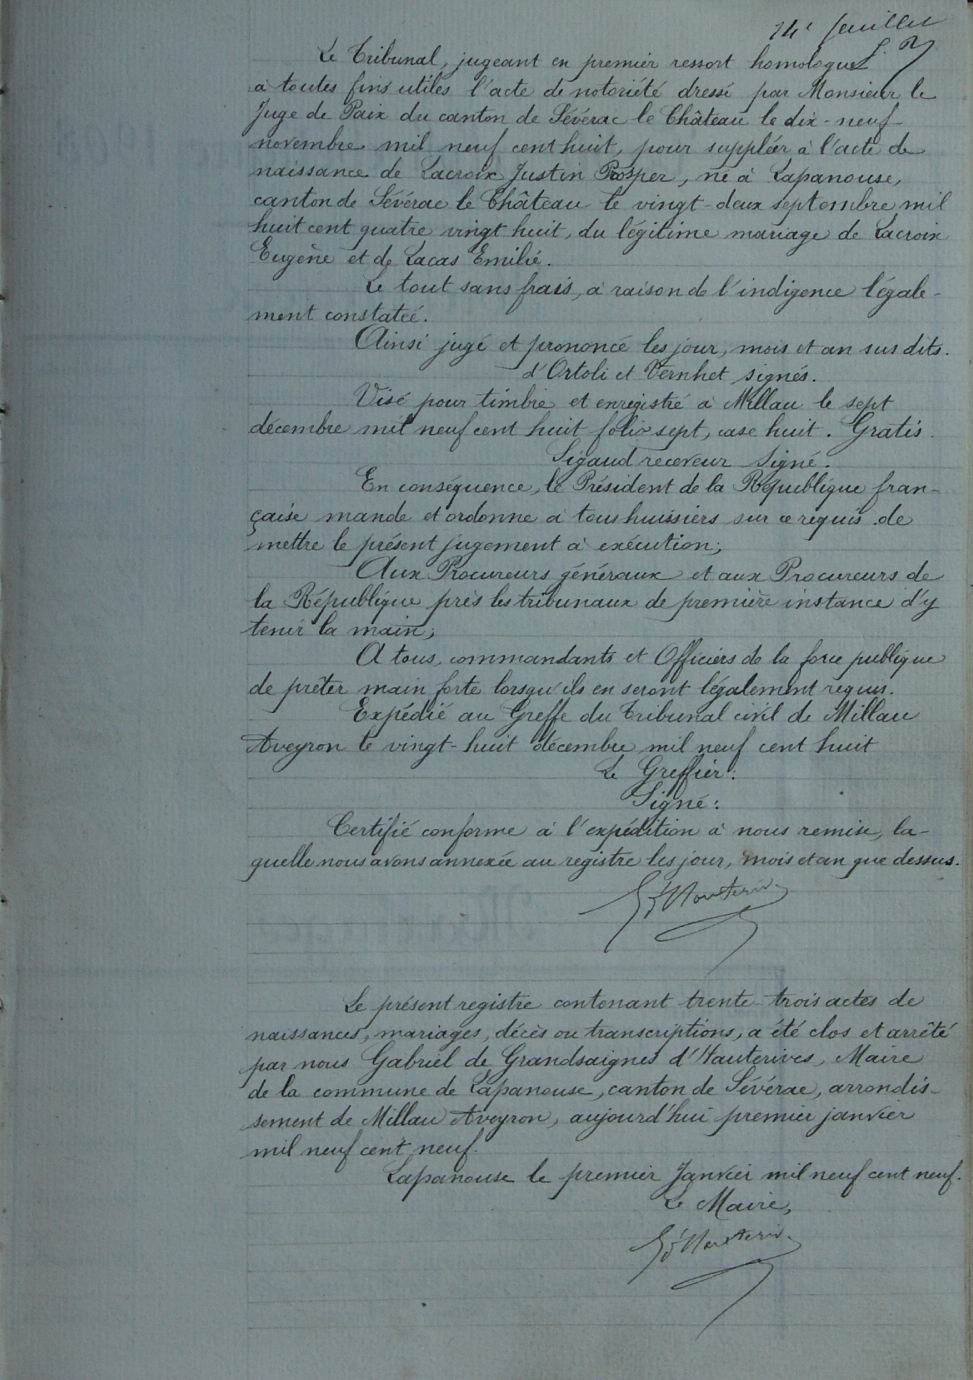 14e feuillet
Le Tribunal, jugeant en premier ressort homologue
à toutes fins utiles l'acte de notoriété dressé par Monsieur le
Juge de Paix du canton de Sévérac le Château le dix-neuf
novembre mil neuf cent huit, pour suppléer à l'acte de
naissance de Lacroix Justin Prosper, né à Lapanouse,
canton de Sévérac le Château le vingt-deux septembre mil
huit cent quatre vingt huit, du légitime mariage de Lacroix
Eugène et de Lacas Emilie.
Le tout sans frais, à raison de l'indigence légale-
ment constatée.
Ainsi jugé et prononcé les jour, mois et an sus dits.
d'Ortoli et Vernhet signés.
Visé pour timbre et enregistré à Millau le sept
décembre mil neuf cent huit folio sept, case huit. Gratis.
Sigaud receveur signé.
En conséquence, le Président de la République fran-
çaise mande et ordonne à tous huissiers sur ce requis de
mettre le présent jugement à exécution;
Aux Procureurs généraux et aux Procureurs de
la République près les tribunaux de première instance d'y
tenir la main;
A tous commandants et Officiers de la force publique
de prêter main forte lorsqu'ils en seront légalement requis.
Expédié au Greffe du Tribunal civil de Millau
Aveyron le vingt-huit décembre mil neuf cent huit
Le Greffier:
Signé:
Certifié conforme à l'expédition à nous remise, la-
quelle nous avons annexée au registre les jour, mois et an que dessus.
Le présent registre contenant trente-trois actes de
naissances, mariages, décès ou transcriptions, a été clos et arrêté
par nous Gabriel de Grandsaignes d'Hauterives, Maire
de la commune de Lapanouse, canton de Sévérac, arrondis-
sement de Millau Aveyron, aujourd'hui premier janvier
mil neuf cent neuf.
Lapanouse le premier Janvier mil neuf cent neuf.
Le Maire,